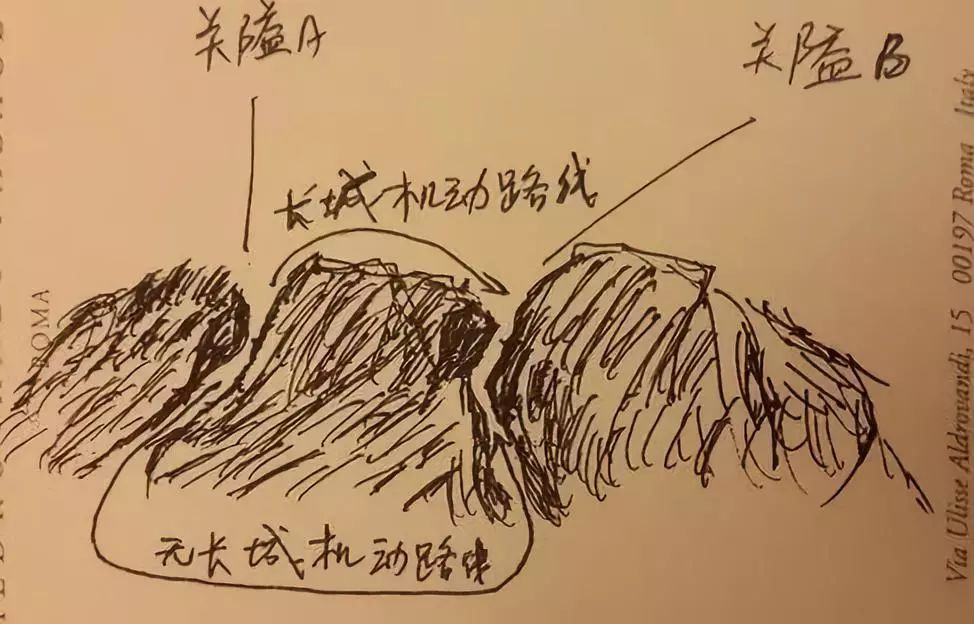 关隘A
关隘B
长城机动路线
无长城机动路线
ROMA
Via Ulisse Aldrovandi, 15 00197 Roma Italy